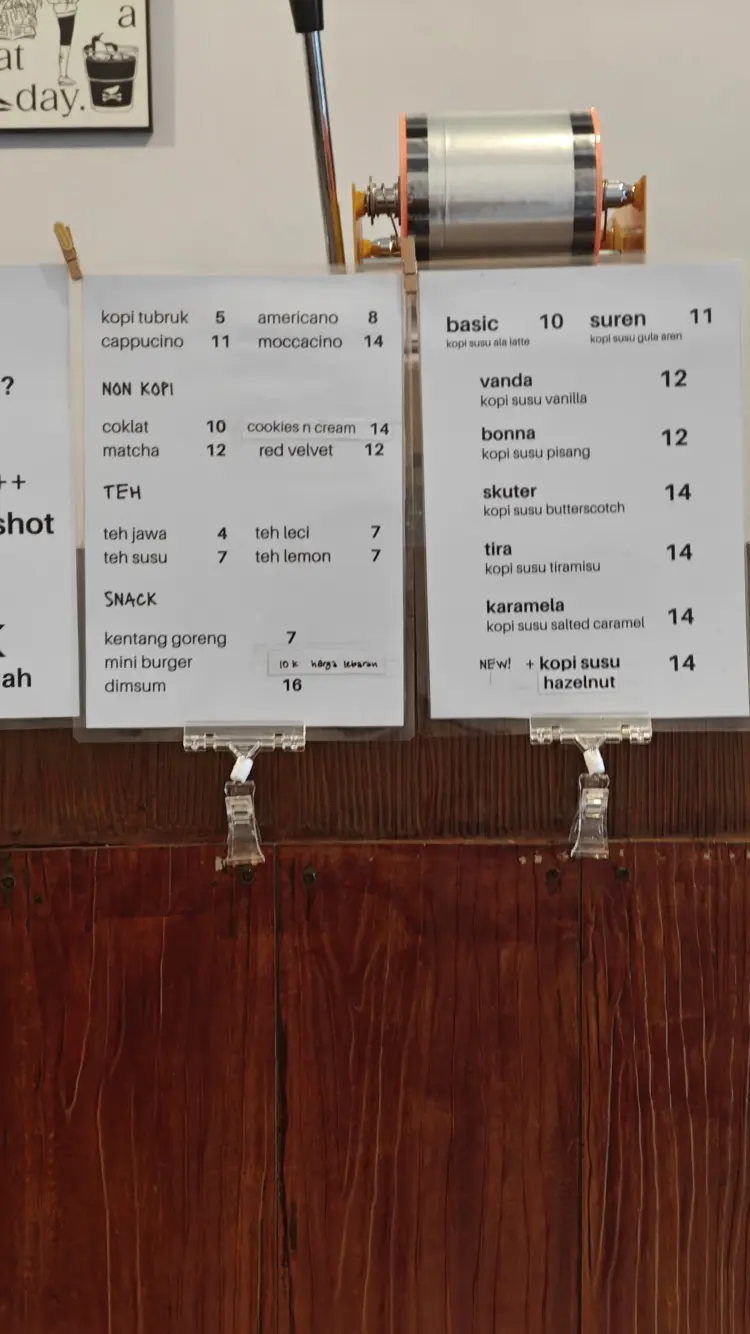 a
at
day.
?
++
shot
ah
kopi tubruk 5 americano 8
cappucino 11 moccacino 14
NON KOPI
coklat 10 cookies n cream 14
matcha 12 red velvet 12
TEH
teh jawa 4 teh leci 7
teh susu 7 teh lemon 7
SNACK
kentang goreng 7
mini burger 10 k harga lebaran
dimsum 16
basic 10 suren 11
kopi susu ala latte kopi susu gula aren
vanda 12
kopi susu vanilla
bonna 12
kopi susu pisang
skuter 14
kopi susu butterscotch
tira 14
kopi susu tiramisu
karamela 14
kopi susu salted caramel
NEW! + kopi susu 14
hazelnut